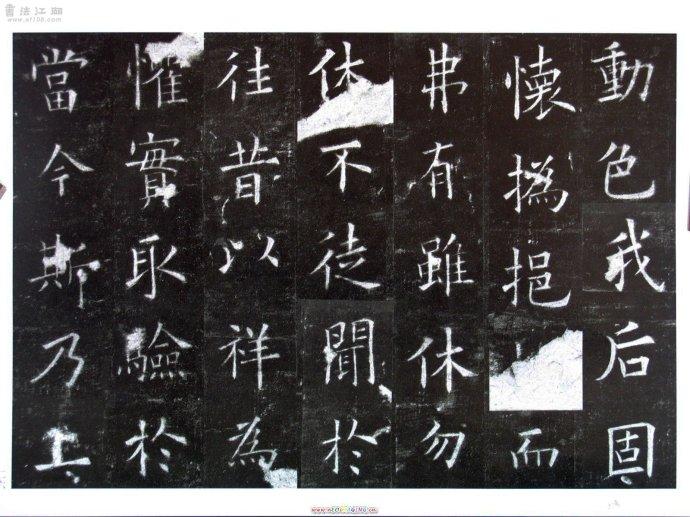 書法江湖
www.sf108.com
動色我后固
懷撝挹而
弗有雖休勿
休不徒聞於
往昔以祥為
懼實取驗於
當今斯乃上